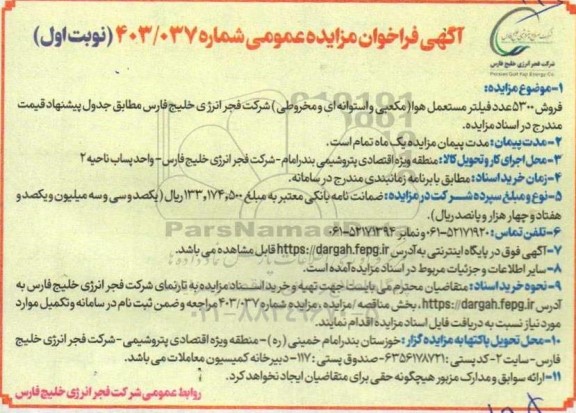 آگهی فراخوان مزایده عمومی شماره ۴۰۳/۰۳۷ (نوبت اول)
شرکت فجر انرژی خلیج فارس
Persian Gulf Fajr Energy Co.
۱-موضوع مزایده:
فروش ۵۳۰۰عدد فیلتر مستعمل هوا( مکعبی و استوانه ای و مخروطی ) شرکت فجر انرژ ی خلیج فارس مطابق جدول پیشنهاد قیمت
مندرج در اسناد مزایده.
۲-مدت پیمان: مدت پیمان مزایده یک ماه تمام است.
۳-محل اجرای کار و تحویل کالا: منطقه ویژه اقتصادی پتروشیمی بندرامام -شرکت فجر انرژی خلیج فارس- واحد پساب ناحیه ۲
۴-زمان خرید اسناد: مطابق با برنامه زمانبندی مندرج در سامانه.
۵-نوع و مبلغ سپرده شرکت در مزایده: ضمانت نامه بانکی معتبر به مبلغ ۱۳۳,۱۷۴,۵۰۰ ریال ( یکصد و سی و سه میلیون و یکصد و
هفتاد و چهار هزار و پانصد ریال).
۶-تلفن تماس: ۵۲۱۷۱۹۲۰-۰۶۱ و نمابر ۵۲۱۷۱۳۹۴-۰۶۱
۷-آگهی فوق در پایگاه اینترنتی به آدرس https://dargah.fepg.ir قابل مشاهده می باشد.
۸- سایر اطلاعات و جزئیات مربوط در اسناد مزایده آمده است.
۹-نحوه خرید اسناد: متقاضیان محترم می بایست جهت تهیه و خرید اسناد مزایده به تارنمای شرکت فجر انرژی خلیج فارس به
آدرس https://dargah.fepg.ir، بخش مناقصه / مزایده ، مزایده شماره ۴۰۳/۰۳۷ مراجعه و ضمن ثبت نام در سامانه و تکمیل موارد
مورد نیاز نسبت به دریافت فایل اسناد مزایده اقدام نمایند.
۱۰-محل تحویل پاکتها به مزایده گزار : خوزستان بندرامام خمینی (ره) - منطقه ویژه اقتصادی پتروشیمی -شرکت فجر انرژی خلیج
فارس-سایت ۲- کد پستی : ۶۳۵۶۱۷۸۷۲۱-صندوق پستی : ۱۱۷- دبیرخانه کمیسیون معاملات می باشد.
۱۱-ارائه سوابق و مدارک مزبور هیچگونه حقی برای متقاضیان ایجاد نخواهد کرد.
روابط عمومی شرکت فجر انرژی خلیج فارس
ParsNamadData